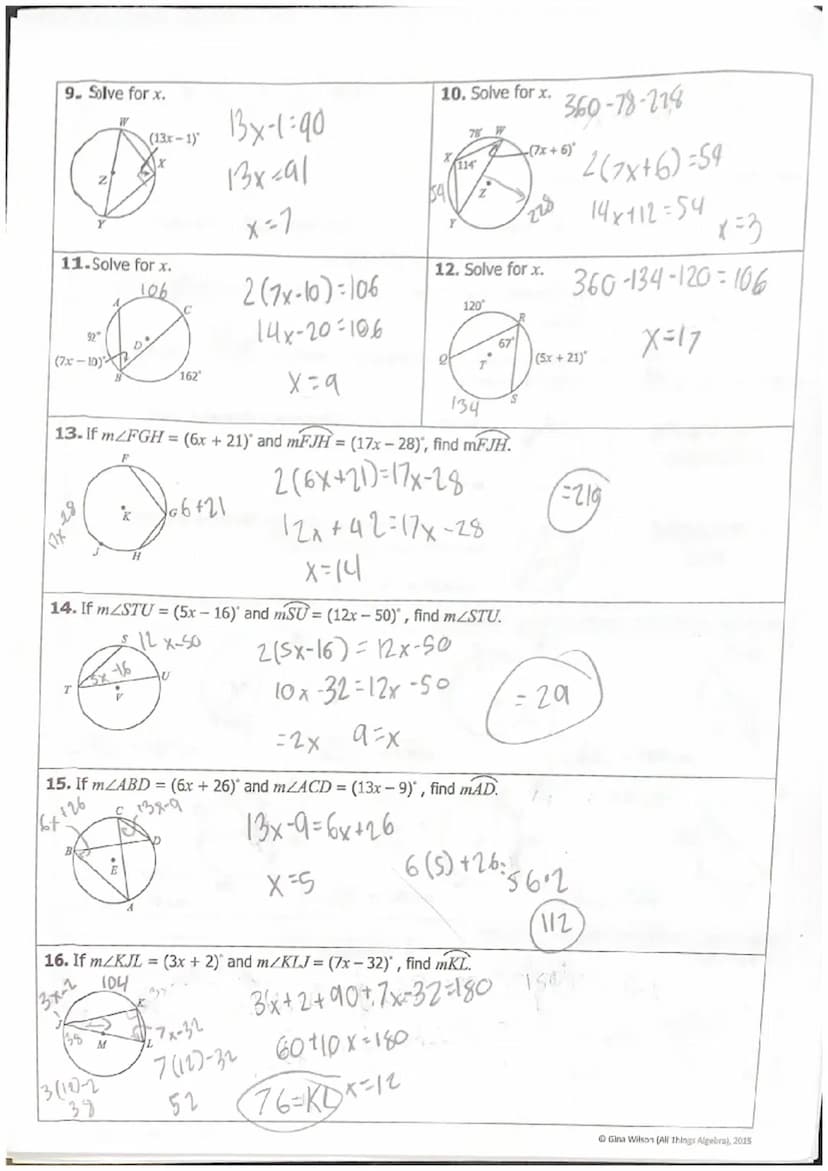 9. Solve for x.
W
(13x – 1)°
X
Z
Y
13x-1=90
13x=91
x=7
10. Solve for x.
360-78-228
78°
W
(7x + 6)°
X
114°
54
Z
Y
228
2(7x+6)=54
14x+12=54
x=3
11. Solve for x.
106
A
C
92°
D
(7x – 10)°
B
162°
2(7x-10)=106
14x-20=106
x=9
12. Solve for x.
360-134-120=106
120°
R
67°
Q
T
(5x + 21)°
S
134
x=17
13. If m∠FGH = (6x + 21)° and mFJH = (17x – 28)°, find mFJH.
F
K
G
6+21
17x-28
J
H
2(6x+21)=17x-28
12x+42=17x-28
x=14
=210
14. If m∠STU = (5x – 16)° and mSU = (12x – 50)°, find m∠STU.
S
12x-50
5x-16
T
U
V
2(5x-16)=12x-50
10x-32=12x-50
=2x 9=x
=29
15. If m∠ABD = (6x + 26)° and m∠ACD = (13x – 9)°, find mAD.
6+
126
C
13x-9
B
D
E
A
13x-9=6x+26
x=5
6(5)+26=
56·2
112
16. If m∠KJL = (3x + 2)° and m∠KLJ = (7x – 32)°, find mKL.
3x-2
104
K
J
38
M
L
7x-32
7(12)-32
52
3(12)-2
38
3x+2+90+7x-32=180
60+10x=180
x=12
76=KL
© Gina Wilson (All Things Algebra), 2015